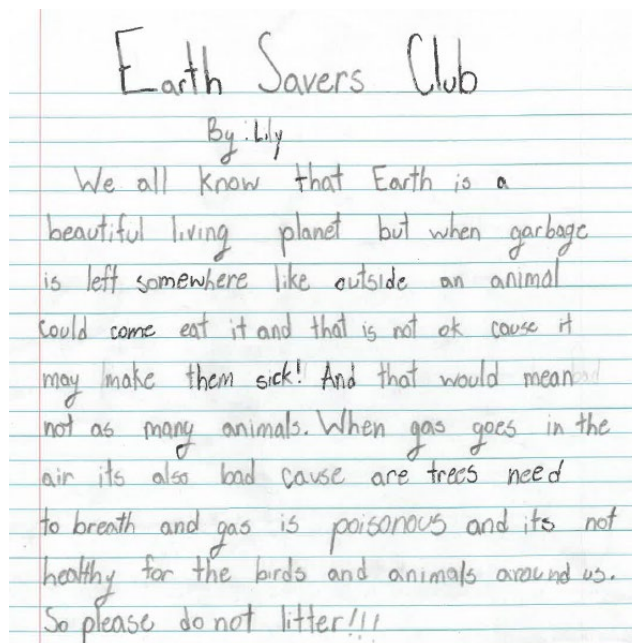 Earth Savers Club
By: Lily
We all know that Earth is a
beautiful living planet but when garbage
is left somewhere like outside an animal
could come eat it and that is not ok cause it
may make them sick! And that would mean
not as many animals. When gas goes in the
air its also bad cause are trees need
to breath and gas is poisonous and its not
healthy for the birds and animals around us.
So please do not litter!!!